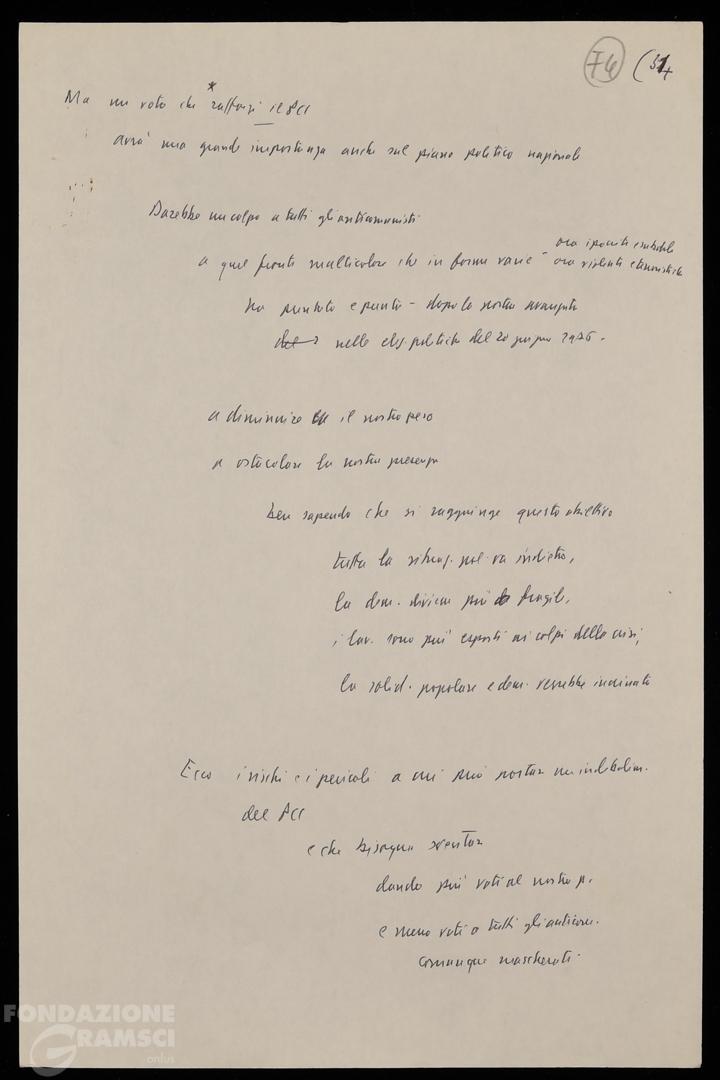 74 (54
Ma un voto che * rafforzi il PCI
avrà una grande importanza anche sul piano politico nazionale
Darebbe un colpo a tutti gli anticomunisti
ora ipocriti e subdoli
a quel fronte multicolore che in forme varie - ora violenti e terroristiche
ha puntato e punta - dopo la nostra avanzata
nelle elez. politiche del 20 giugno 1976 -
a diminuire il nostro peso
a ostacolare la nostra presenza
ben sapendo che si raggiunge questo obiettivo
tutta la situaz. pol. va indietro,
la dem. diviene più fragile,
i lav. sono più esposti ai colpi della crisi,
la solid. popolare e dem. verrebbe incrinata
Ecco i rischi e i pericoli a cui può portare un indebolim.
del PCI
e che bisogna sventare
dando più voti al nostro p.
e meno voti a tutti gli anticom.
comunque mascherati.
FONDAZIONE
GRAMSCI
onlus